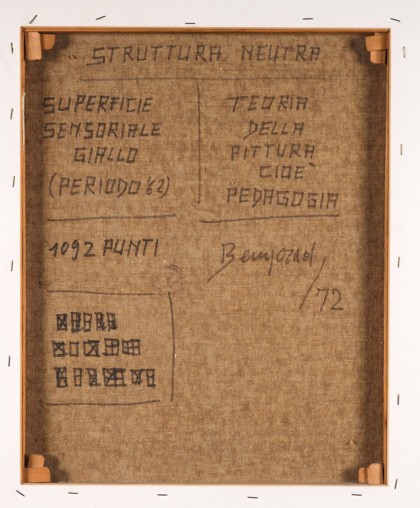 STRUTTURA NEUTRA
SUPERFICIE
SENSORIALE
GIALLO
(PERIODO '62)
TEORIA
DELLA
PITTURA
CIOÈ
PEDAGOGIA
1092 PUNTI
/72